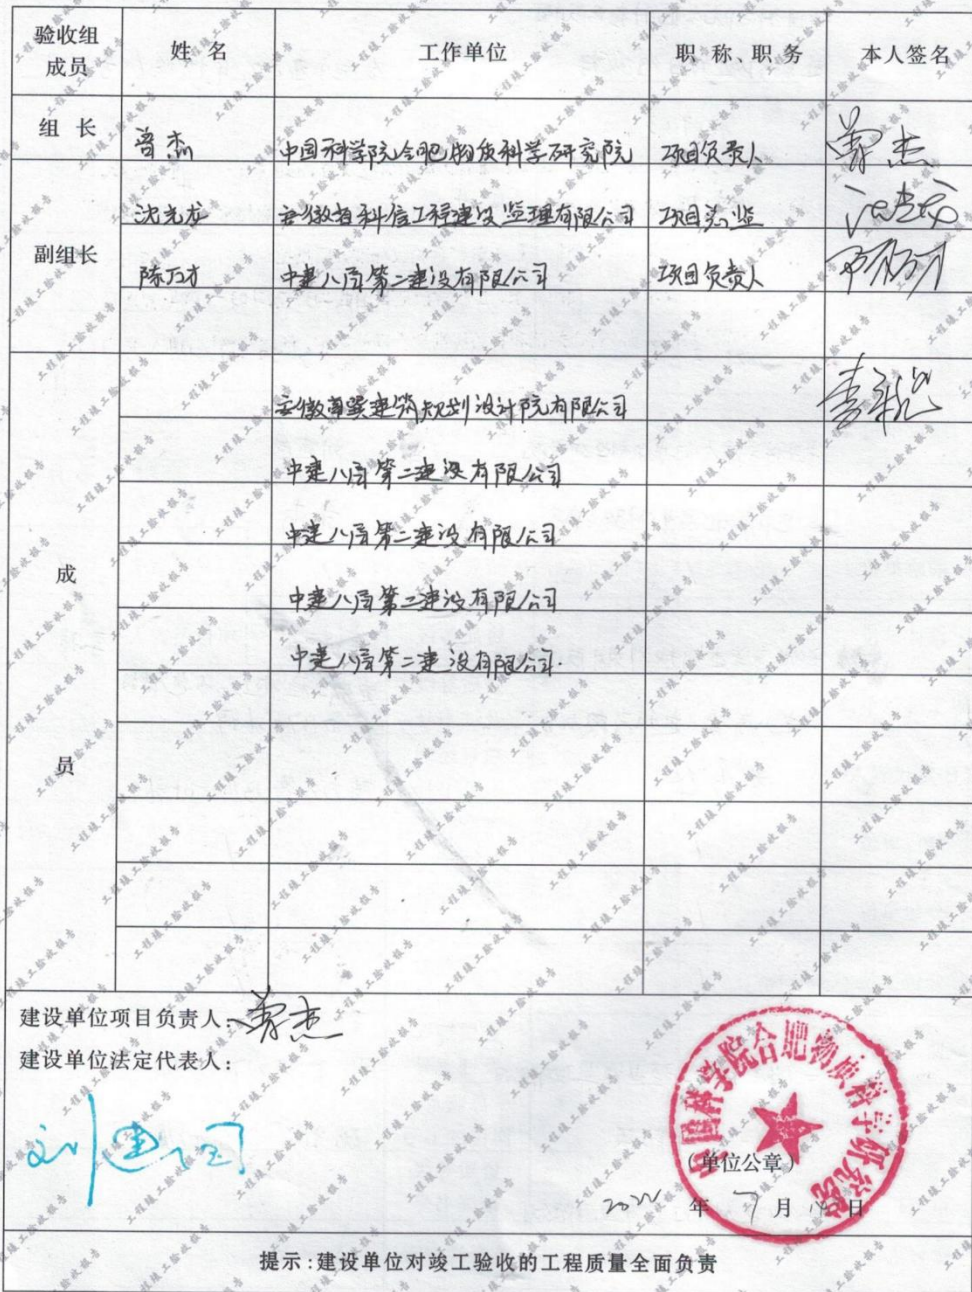 验收组成员 姓名 工作单位 职称、职务 本人签名
组长 曾杰 中国科学院合肥物质科学研究院 项目负责人 曾杰
沈光龙 安徽省科信工程建设监理有限公司 项目总监
副组长
陈万才 中建八局第二建设有限公司 项目负责人
建筑规划设计院有限公司
中建八局第二建设有限公司
中建八局第二建设有限公司
中建八局第二建设有限公司
中建八局第二建设有限公司.
成
员
建设单位项目负责人: 曾杰
建设单位法定代表人:
中国科学院合肥物质科学研究院
(单位公章)
2022年7月 日
提示:建设单位对竣工验收的工程质量全面负责
工程竣工验收报告